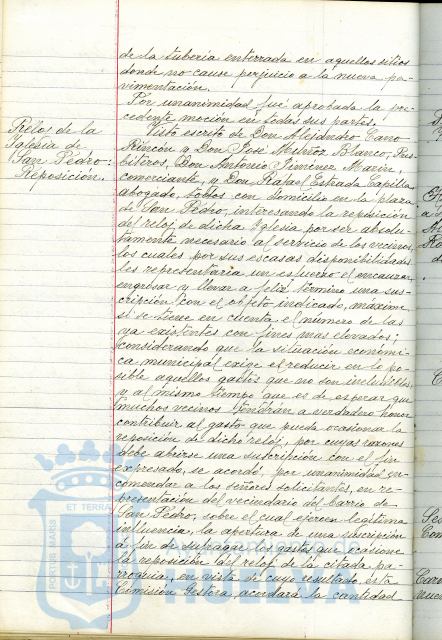 de la tuberia enterrada en aquellos sitios
donde no cause perjuicio a la nueva pa-
vimentación.
Por unanimidad fué aprobada la pre-
cedente moción en todas sus partes.
Reloj de la
Iglesia de
San Pedro:
Reposición.
Visto escrito de Don Alejandro Cano
Rincón y Don José Muñoz Blanco, Pres-
bíteros, Don Antonio Jimenez Marin,
comerciante, y Don Rafael Estrada Capilla
abogado, todos con domicilio en la plaza
de San Pedro, interesando la reposición
del reloj de dicha Iglesia por ser absolu-
tamente necesario al servicio de los vecinos,
los cuales por sus escasas disponibilidades
les representaria un esfuerzo el encauzar,
engrosar y llevar a feliz término una sus-
cripción con el objeto indicado, máxime
si se tiene en cuenta el número de las
ya existentes con fines mas elevados;
considerando que la situación económi-
ca municipal exige el reducir en lo po-
sible aquellos gastos que no son ineludibles,
y al mismo tiempo que es de esperar que
muchos vecinos tendrán a verdadero honor
contribuir al gasto que pueda ocasionar la
reposición de dicho reloj, por cuyas razones
debe abrirse una suscripción con el fin
expresado, se acordó por unanimidad en-
comendar a los señores solicitantes, en re-
presentación del vecindario del barrio de
San Pedro, sobre el cual ejercen legitima
influencia, la apertura de una suscripción
a fin de sufragar los gastos que ocasione
la reposición del reloj de la citada pa-
rroquia, en vista de cuyo resultado, esta
Comisión Gestora, acordará la cantidad
PORTUS MARIS
ET TERRA
HUELVA